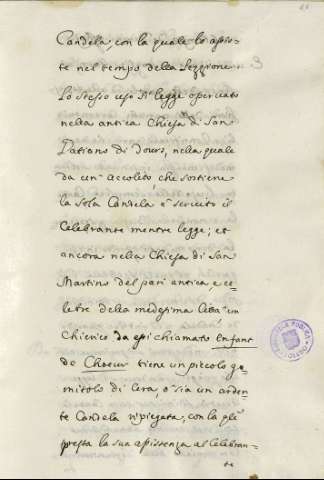 Candela, con la quale lo assis-
te nel tempo della Lezzione.
Lo stesso uso si legge osservato
nella antica Chiesa di San
Gatiano di Tours, nella quale
da un accolito, che sostiene
la sola Candela è servito il
Celebrante mentre legge; et
ancora nella Chiesa di San
Martino del pari antica e ce-
lebre della medesima Città, un
Chierico da essi chiamato Enfant
de Choeur tiene un piccolo go-
mitolo di Cera, o sia un arden-
te Candela ripiegata; con la qle
presta la sua assistenza al Celebran-
te